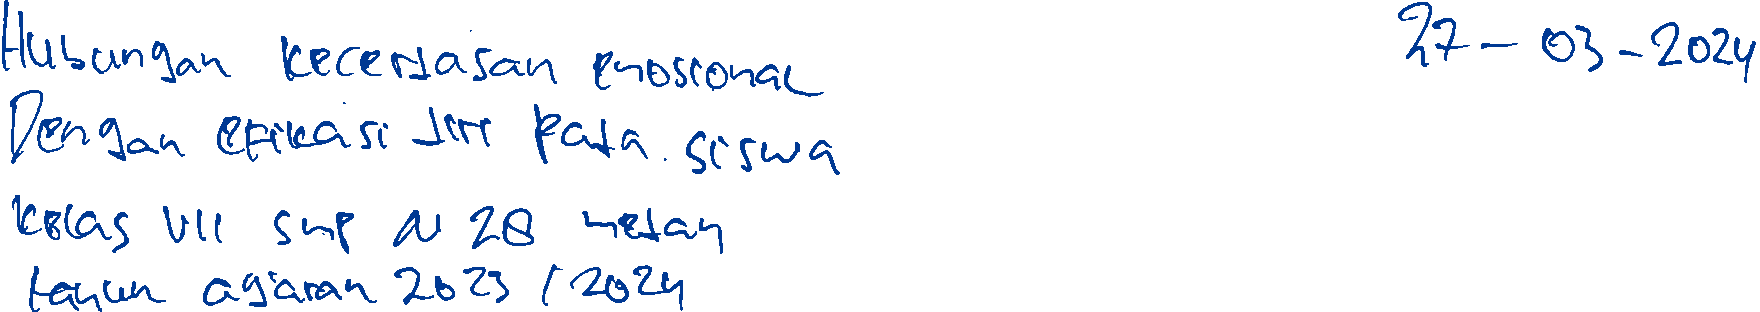 Hubungan kecerdasan emosional
27-03-2024
Dengan efikasi diri pada siswa
kelas VII smp N 28 medan
tahun ajaran 2023/2024